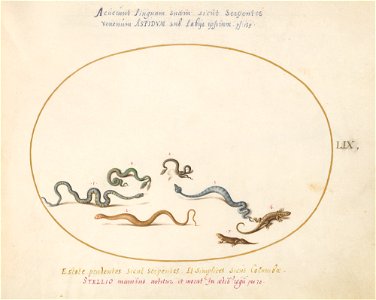 Acuerunt linguam suam sicut Serpentes
venenum ASPIDVM sub labijs
LIX.
Estote prudentes sicut serpentes. Et simplices sicut Columbæ.
STELLIO manibus nititur et moratur in ædibus regis